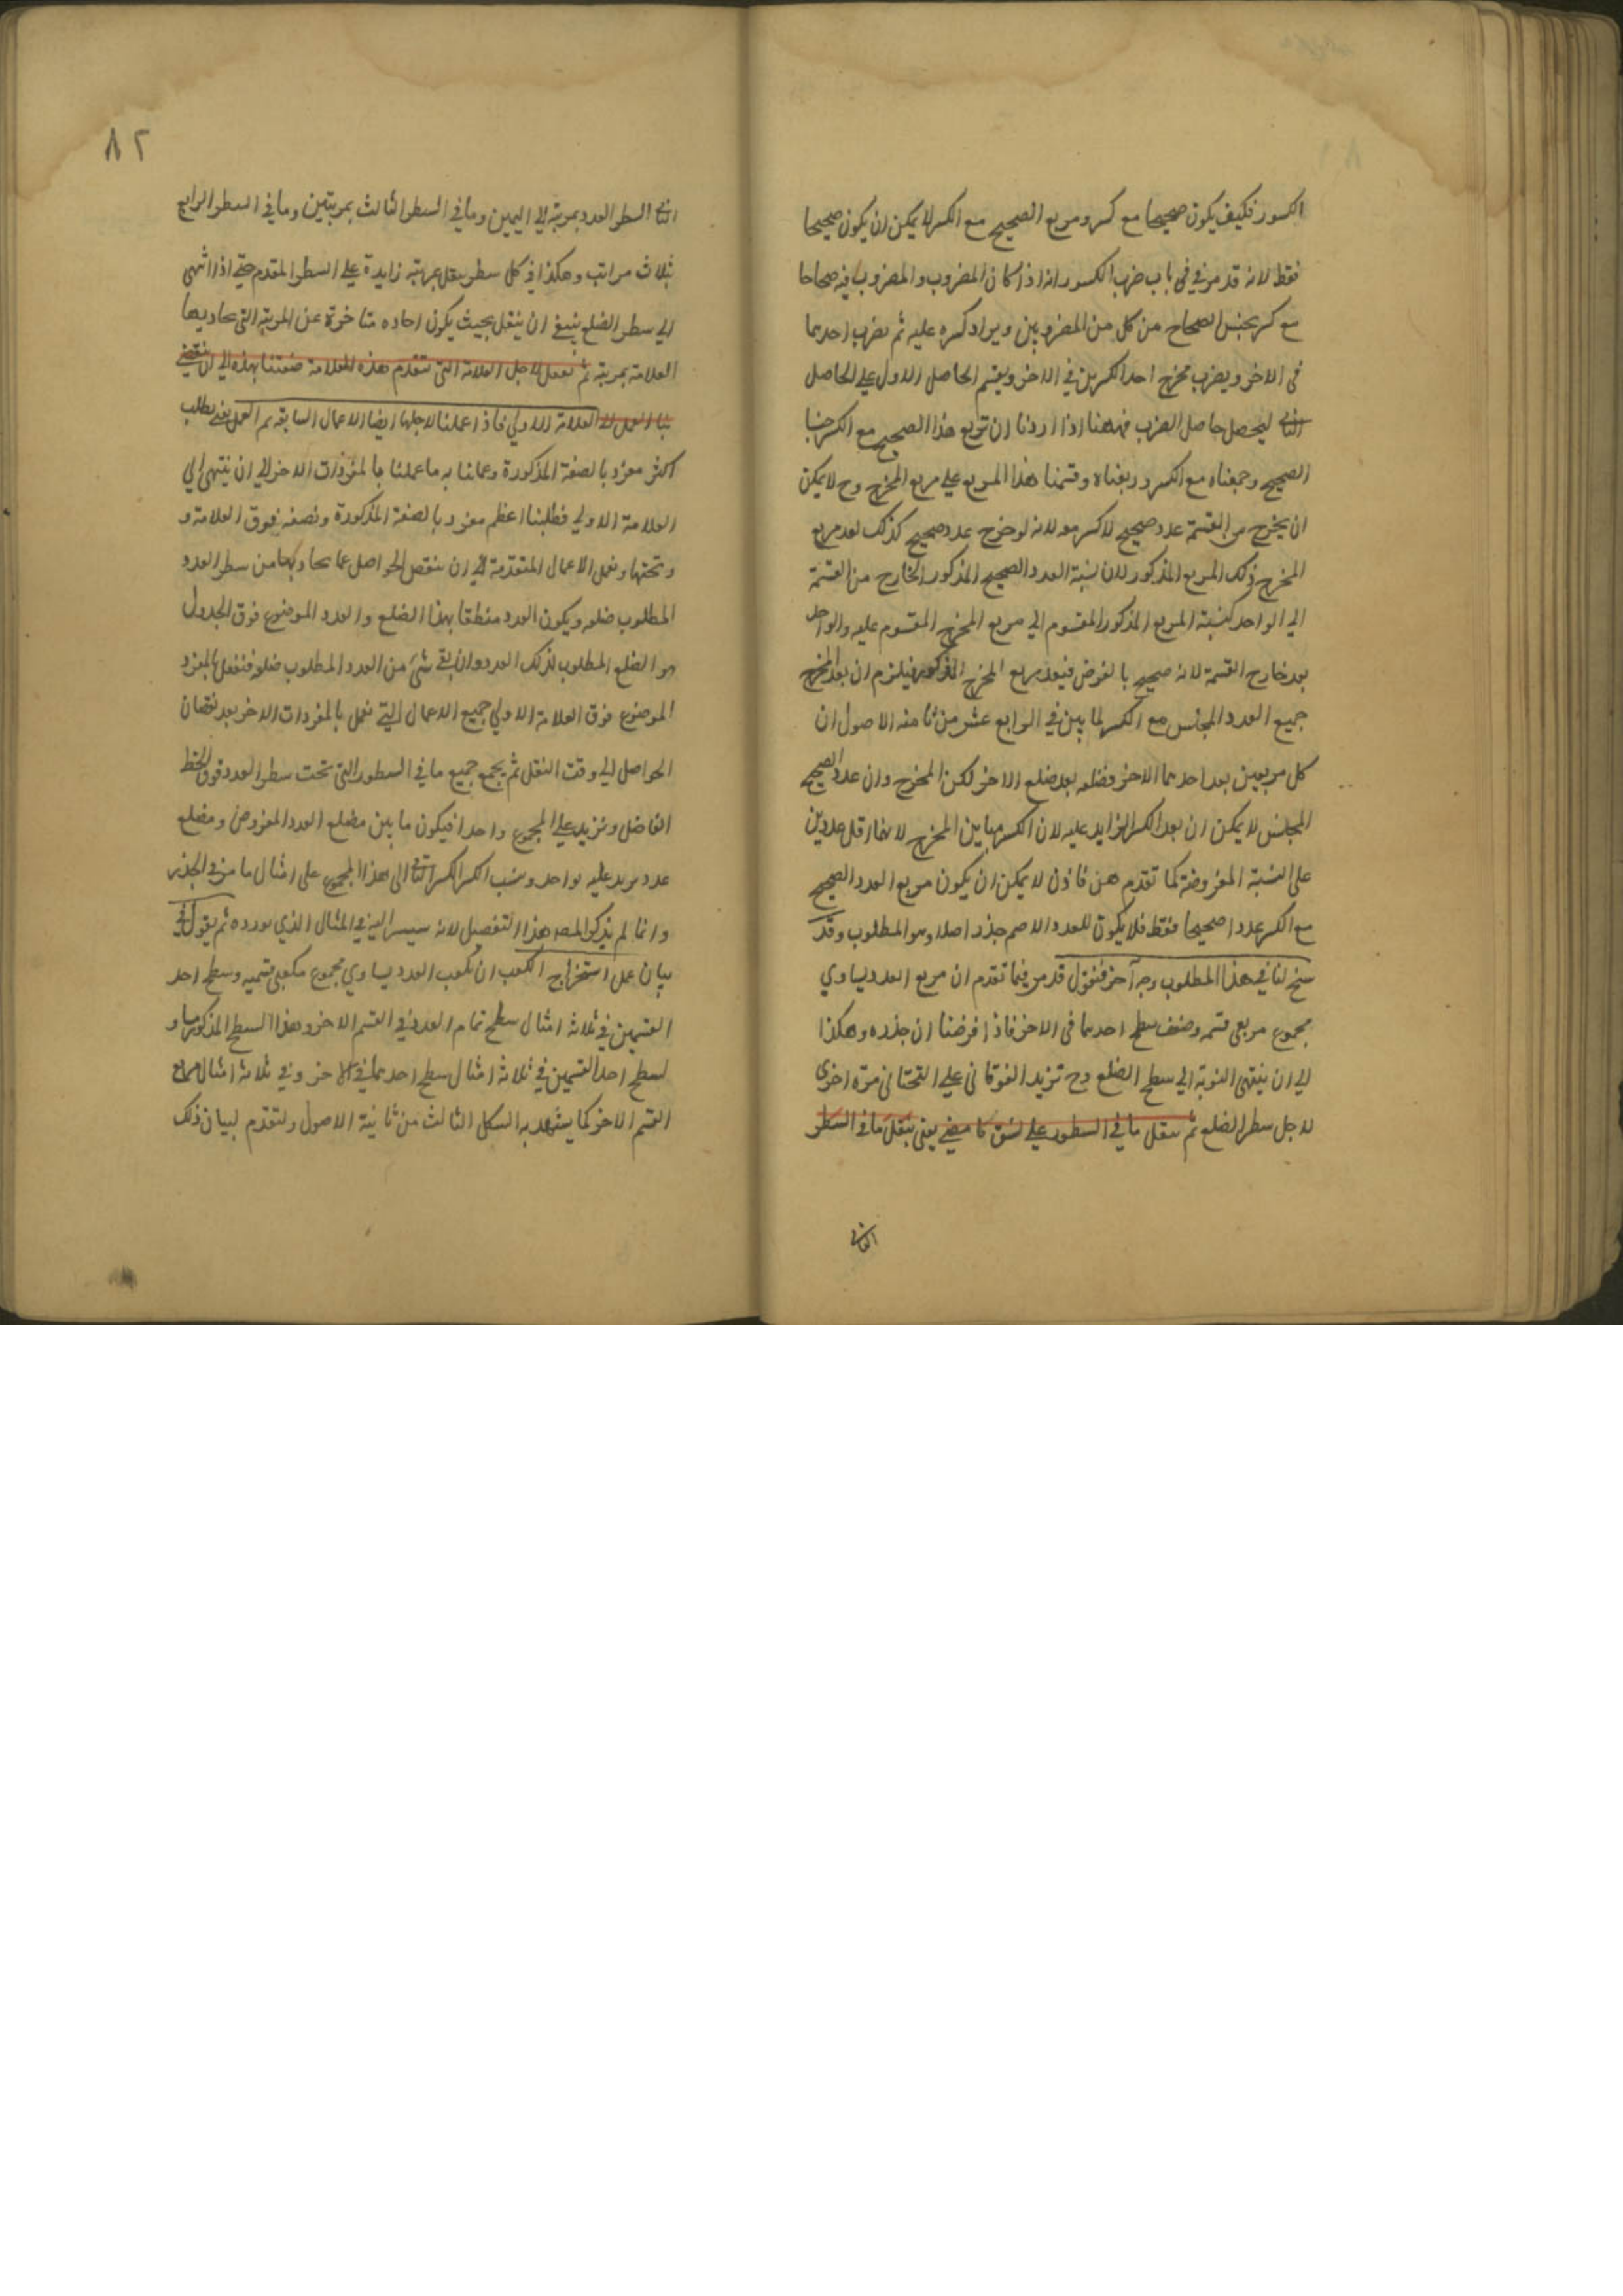 الكسور فكيف يكون صحيحا مع كسر ومربع الصحيح مع الكسر لا يمكن ان يكون صحيحا
فقط لانه قد مر في باب ضرب الكسور انه اذا كان المضروب والمضروب فيه صحاحا
مع كسر يجنس الصحاح من كل من المضروبين ويزاد كسره عليه ثم يضرب احدهما
فى الاخر ويضرب مخرج احد الكسرين في الاخر ويقسم الحاصل الاول على الحاصل
الثانى ليحصل حاصل الضرب فههنا اذا اردنا ان نربع هذا الصحيح مع الكسر جنسنا
الصحيح وجمعناه مع الكسر وربعناه وقسمنا هذا المربع على مربع المخرج وح لا يمكن
ان يخرج من القسمة عدد صحيح لا كسر معه لانه لو خرج عدد صحيح كذلك لعد مربع
المخرج ذلك المربع المذكور لان نسبة العدد الصحيح المذكور الخارج من القسمة
الى الواحد كنسبة المربع المذكور المقسوم الى مربع المخرج المقسوم عليه والواحد
يعد خارج القسمة لانه صحيح بالفرض فيعد مربع المخرج المذكور فيلزم ان يعد المخرج
جميع العدد المجنس مع الكسر لما بين في الرابع عشر من ثامنه الاصول ان
كل مربعين يعد احدهما الاخر فضلعه يعد ضلع الاخر لكن المخرج وان عد الصحيح
المجنس لا يمكن ان يعد الكسر الزايد عليه لان الكسر مباين المخرج لانهما اقل عددين
على النسبة المفروضة كما تقدم فاذن لا يمكن ان يكون مربع العدد الصحيح
مع الكسر عددا صحيحا فقط فلا يكون للعدد الاصم جذر اصلا وهو المطلوب وقد
سنح لنا في هذا المطلوب وجه آخر فنقول قد مر فيما تقدم ان مربع العدد يساوي
مجموع مربعى قسمه وضعف سطح احدهما فى الاخر فاذا فرضنا ان جذره وهكذا
الى ان ينتهى النوبة الى سطح الضلع وح تزيد الفوقانى على التحتانى مرة اخرى
لاجل سطر الضلع ثم ننقل ما في السطور على نسق ما مضى يعنى ننقل ما في السطر
الثانى
٨٢
الثانى السطر العدد بمرتبة الى اليمين وما في السطر الثالث بمرتبتين وما في السطر الرابع
بثلاث مراتب وهكذا في كل سطر ينقل بمرتبة زايدة على السطر المقدم حتى اذا انتهى
الى سطر الضلع ينبغى ان ينقل بحيث يكون احاده متاخرة عن المرتبة التى تحاذيها
العلامة بمرتبة ثم نعمل لاجل العلامة التى تتقدم هذه العلامة صنعتنا بهذه الى ان ينقضي
بنا العمل الى العلامة الاولى فاذا عملنا لاجلها ايضا الاعمال السابقة تم العمل يعنى يطلب
اكثر مفرد بالصفة المذكورة وعملنا به ما عملنا بالمفردات الاخر الى ان ينتهى الى
العلامة الاولى فطلبنا اعظم مفرد بالصفة المذكورة ونضعه فوق العلامة و
وتحتها ونعمل الاعمال المتقدمة الى ان ننقص الحواصل عما يحاذيها من سطر العدد
المطلوب ضلعه ويكون العدد منطقا بهذا الضلع والعدد الموضوع فوق الجدول
هو الضلع المطلوب لذلك العدد وان بقى شئ من العدد المطلوب ضلعه فنفعل بالمفرد
الموضوع فوق العلامة الاولى جميع الاعمال التى نعمل بالمفردات الاخر بعد نقصان
الحواصل الى وقت النقل ثم يجمع جميع ما في السطور التى تحت سطر العدد فوق الخط
الفاضل ونزيد على المجموع واحدا فيكون ما بين مضلع العدد المفروض ومضلع
عدد يزيد عليه بواحد وينسب الكسر الى هذا المجموع على امثال ما مر في الجذر
وانما لم يذكر المصـ هذا التفصيل لانه سيسر اليه في المثال الذي يورده ثم يقول في
بيان عمل استخراج الكعب ان مكعب العدد يساوي مجموع مكعبى قسميه وسطح احد
القسمين في ثلاثة امثال سطح تمام العدد في القسم الاخر وهذا السطح المذكور مساو
لسطح احد القسمين في ثلاثة امثال سطح احدهما في الاخر وفي ثلاثة امثال مربع
القسم الاخر كما يشهد به الشكل الثالث من ثانية الاصول ولنقدم لبيان ذلك